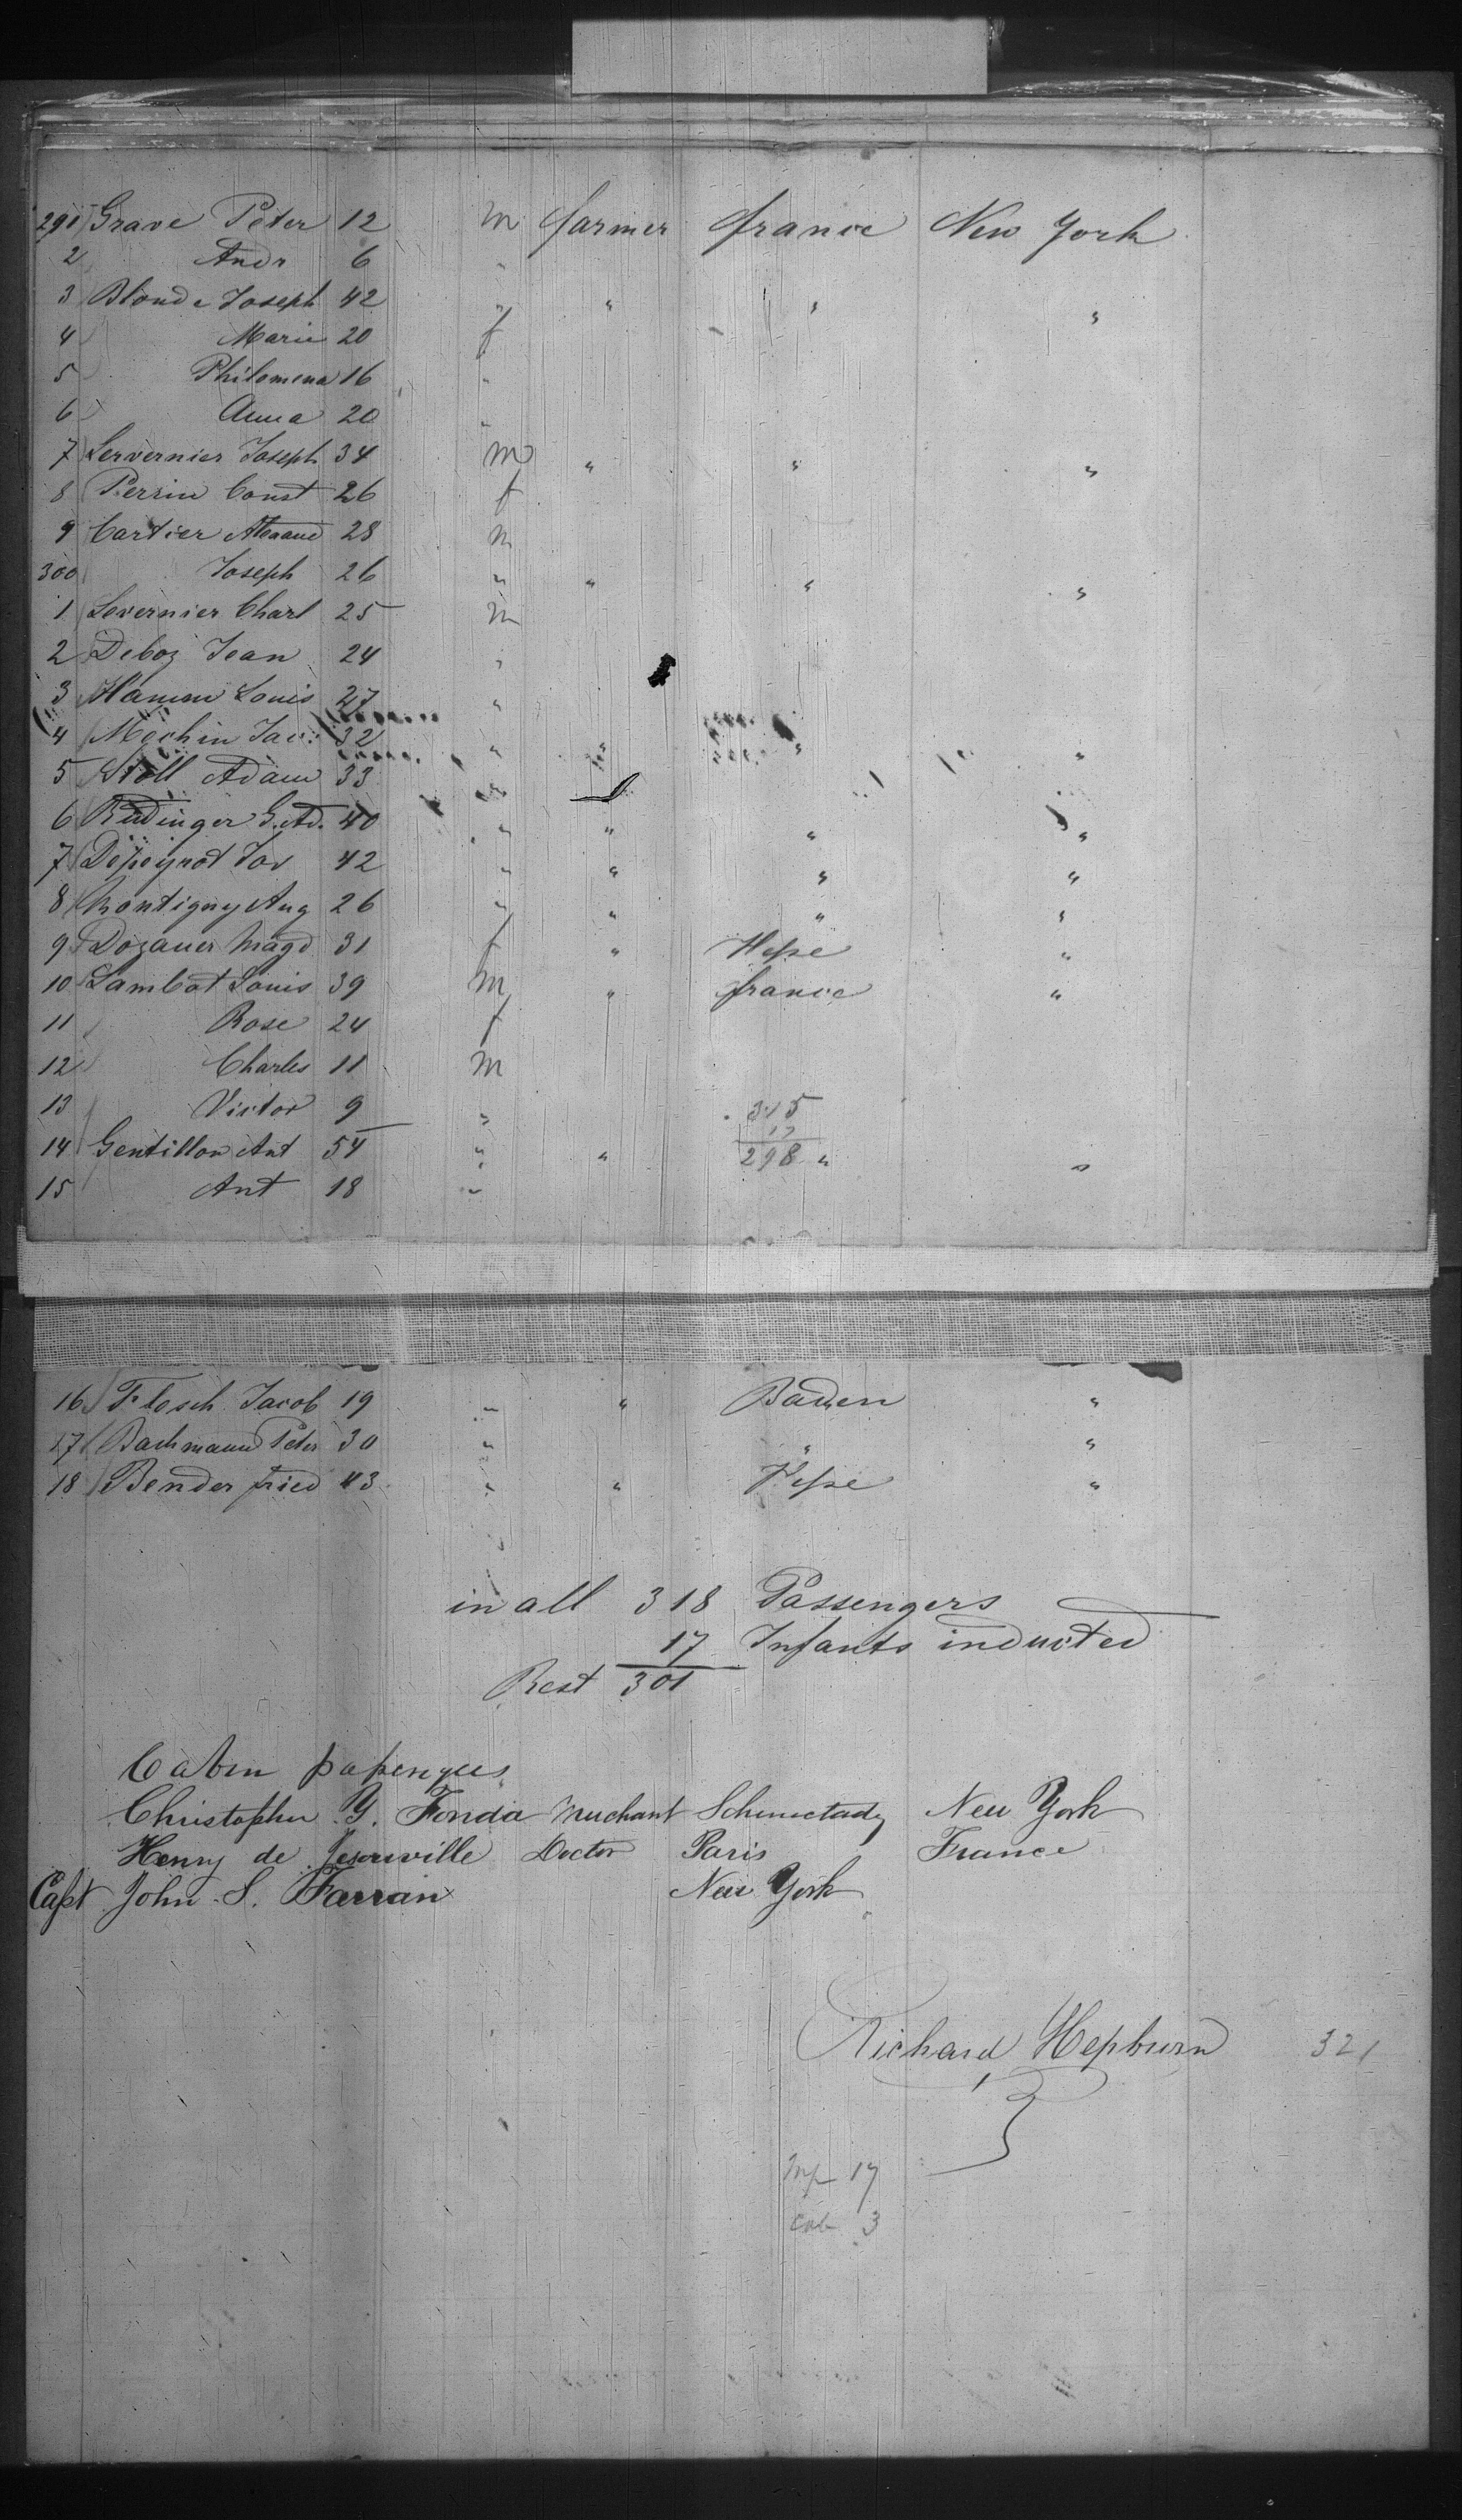 291 Grave Peter 12 m farmer france New York
2 Andr 6 "
3 Blonde Joseph 42 " " " "
4 Marie 20 f
5 Philomena 16 "
6 Anna 20 "
7 Lervernier Joseph 34 m " " "
8 Perrin Const 26 f
9 Cartier 28 m
300 Joseph 26 " " " "
1 Levernier Charl 25 m
2 Deboz Jean 24 "
3 Louis 27 "
4 Mechin Jac: 32 " " " "
5 Adam 33 "
6 Rudinger G. Ad. 40 " " " "
7 Depeyrot 42 " " " "
8 Montigny Aug 26 " " " "
9 Dozauer Magd 31 f " Hesse "
10 Lambot Louis 39 m " france "
11 Rose 24 f
12 Charles 11 m
13 Victor 9 " 315
17
14 Gentillon Ant 54 " " 298 " "
15 Ant 18 "
16 Flosch Jacob 19 " " Baden "
17 Bachmann Peter 30 " " "
18 Bender fried 43 " " Hesse "
in all 318 Passengers
17 Infants inducted
Rest 301
Cabin passengers
Christopher Y. Fonda Merchant Schenectady New York
Henry de Doctor Paris France
Capt John S. Farran New York
Richard Hepburn 321
Inf 17
Cab 3